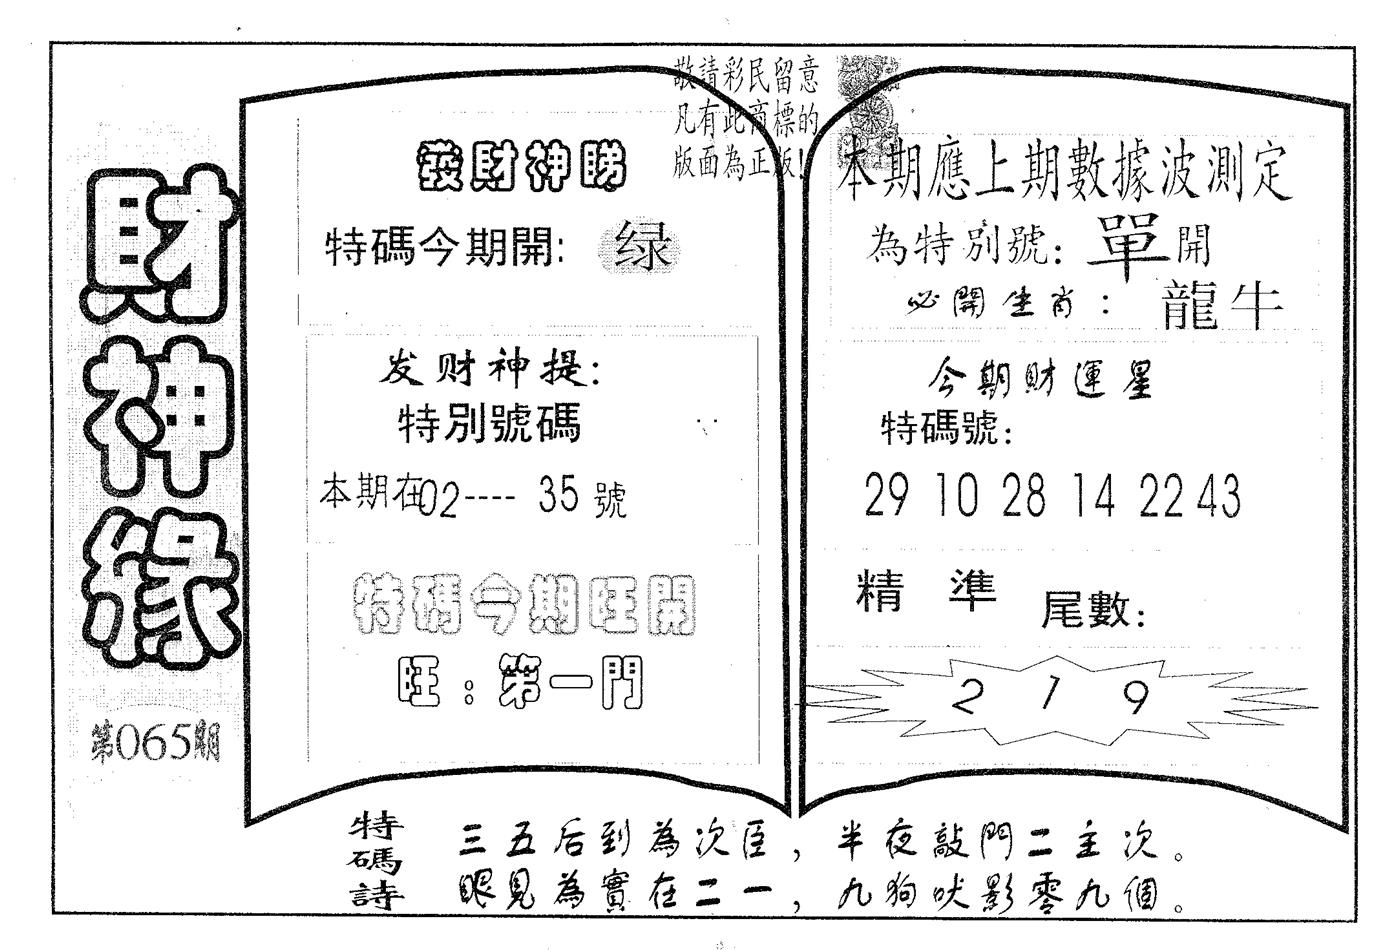 財神緣
第065期
敬請彩民留意
凡有此商標的
版面為正版!
發財神睇
特碼今期開: 绿
发财神提:
特別號碼
本期在02---- 35 號
特碼今期旺開
旺:第一門
本期應上期數據波測定
為特別號: 單 開
必開生肖: 龍牛
今期財運星
特碼號:
29 10 28 14 22 43
精 準 尾數:
2 1 9
特碼詩
三五后到為次臣,半夜敲門二主次。
眼見為實在二一,九狗吠影零九個。